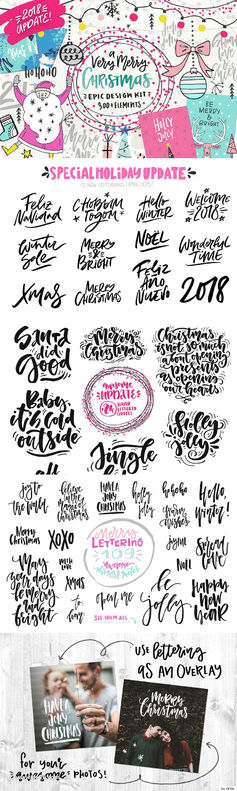 2018
UPDATE!
HOHOHO
a
Very Merry
CHRISTMAS
EPIC DESIGN KIT
900+ ELEMENTS
HOLLY
JOLLY
BE
MERRY
&
BRIGHT
SPECIAL HOLIDAY UPDATE
12 NEW LETTERINGS (PNG+EPS)
Feliz
Navidad
Hello
WINTER
WELCOME
2018
Winter
Sale
MERRY
& BRIGHT
NOËL
Wonderful
TIME
XMAS
MERRY
CHRISTMAS
FELIZ
AÑO
NUEVO
2018
Santa
did
Good
Merry
Christmas
Christmas
is not so much
about opening
presents
as opening
our hearts
awesome
UPDATE
24
HAND
LETTERED
QUOTES
Baby,
it's cold
outside
Holly
Jolly
Jingle
all
joy to
the world
believe
in the
magic of
christmas
HAVE A
JOLLY
CHRISTMAS
holly
jolly
hohoho
warm
wishes
Hello,
Winter!
Merry
Christmas
XOXO
Merry
LETTERING
109
Awesome
joyful
Spread
love
May
your days
be merry
and
bright
with
love
XMAS
Noël
to:
from:
SEE THEM ALL
be
jolly
HAPPY
NEW
YEAR
USE lettering
AS AN OVERLAY
HAVE A
JOLLY
CHRISTMAS
Merry
Christmas
for your
awesome PHOTOS!